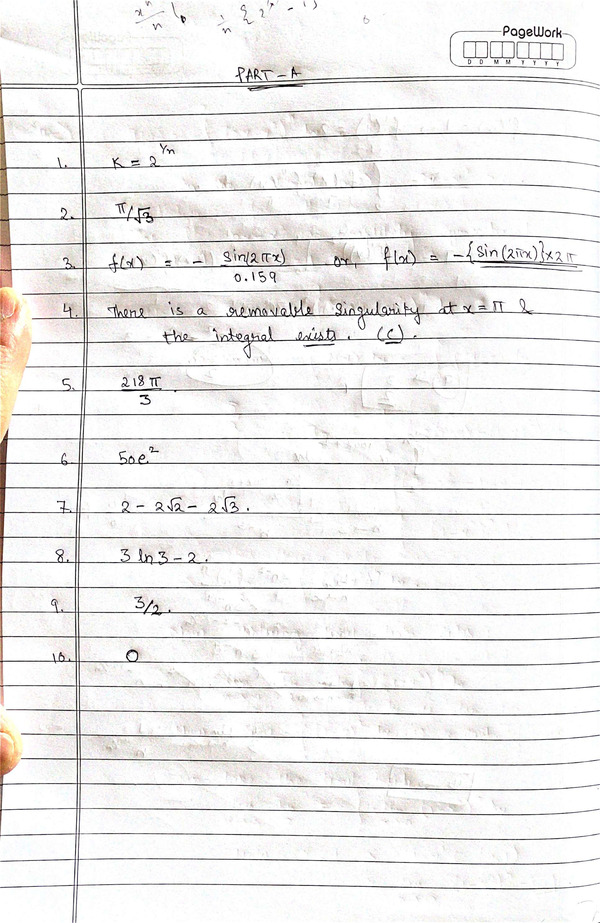 xⁿ/n | 1/n { 2ˣ - 1 }
PageWork
D D M M Y Y Y Y
PART - A
1. K = 2^(1/n)
2. π/√3
3. f(x) = - sin(2πx)/0.159 or, f(x) = -{sin(2πx)}×2π
4. There is a removable singularity at x = π &
the integral exists. (C).
5. 218π/3.
6. 50e²
7. 2 - 2√2 - 2√3.
8. 3 ln 3 - 2.
9. 3/2.
10. 0